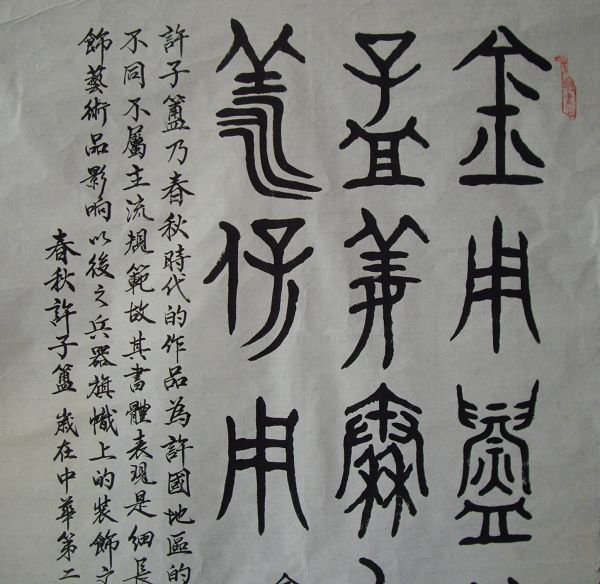 金用鑄
孟姜秦
羕保用
許子簠乃春秋時代的作品為許國地區的
不同不屬主流規範故其書體表現是細長
飾藝術品影响以後之兵器旗幟上的裝飾文
春秋許子簠 歲在中華第二